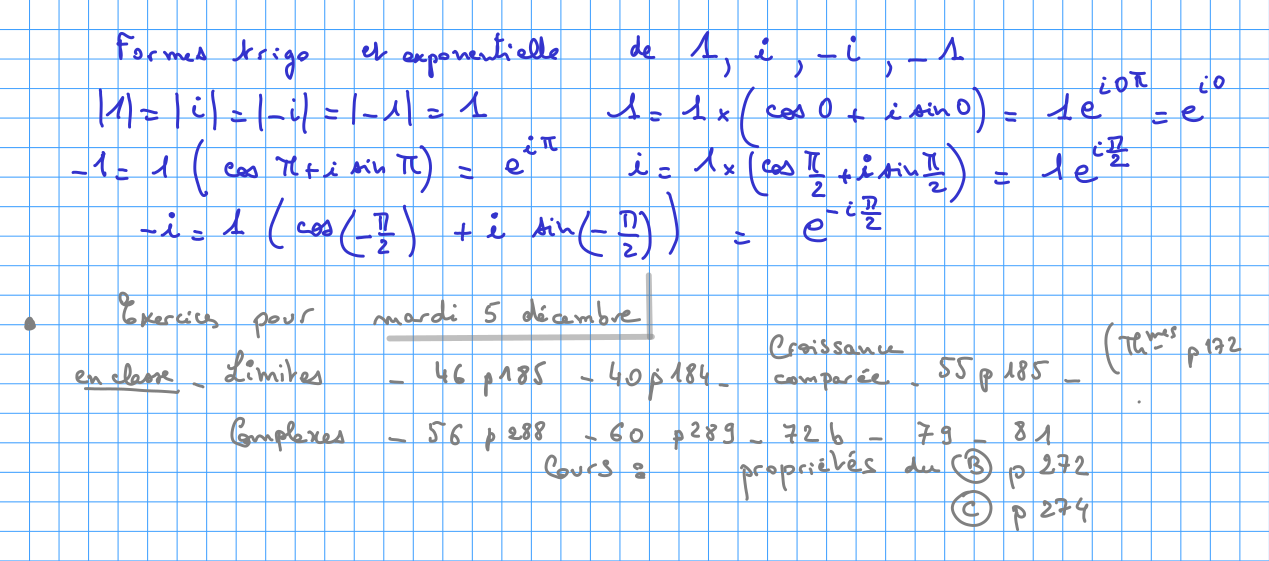 Formes trigo et exponentielle de 1, i, -i, -1
|1| = |i| = |-i| = |-1| = 1    1 = 1 × (cos 0 + i sin 0) = 1e^{i0π} = e^{i0}
-1 = 1 (cos π + i sin π) = e^{iπ}    i = 1 × (cos π/2 + i sin π/2) = 1e^{iπ/2}
-i = 1 (cos(-π/2) + i sin(-π/2)) = e^{-iπ/2}
• Exercices pour mardi 5 décembre
en classe - Limites - 46 p185 - 40 p184 - Croissance comparée - 55 p185 - (Th^{mes} p172
Complexes - 56 p288 - 60 p289 - 72 b - 79 - 81
Cours : propriétés du (B) p 272
(C) p 274